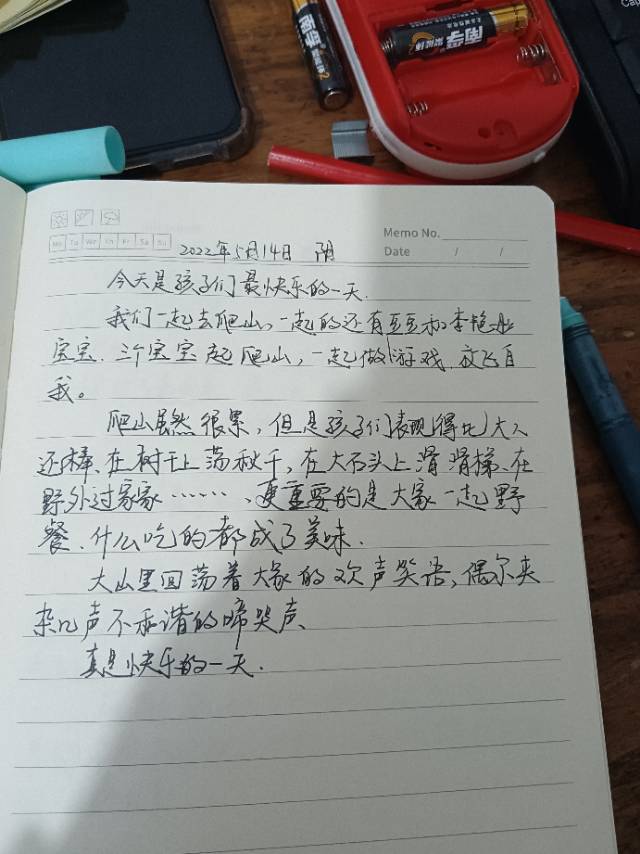 南孚
南孚
Cap
Memo No.
Mo Tu We Th Fr Sa Su
Date / /
2022年5月14日 阴
今天是孩子们最快乐的一天.
我们一起去爬山,一起的还有豆豆和李艳
宝宝.三个宝宝起爬山,一起做游戏.放飞自
我。
爬山虽然很累,但是孩子们表现得比大人
还棒.在树干上荡秋千,在大石头上滑滑梯、在
野外过家家……、更重要的是大家一起野
餐.什么吃的都成了美味.
大山里回荡着大家的欢声笑语,偶尔夹
杂几声不和谐的啼哭声、
真是快乐的一天.